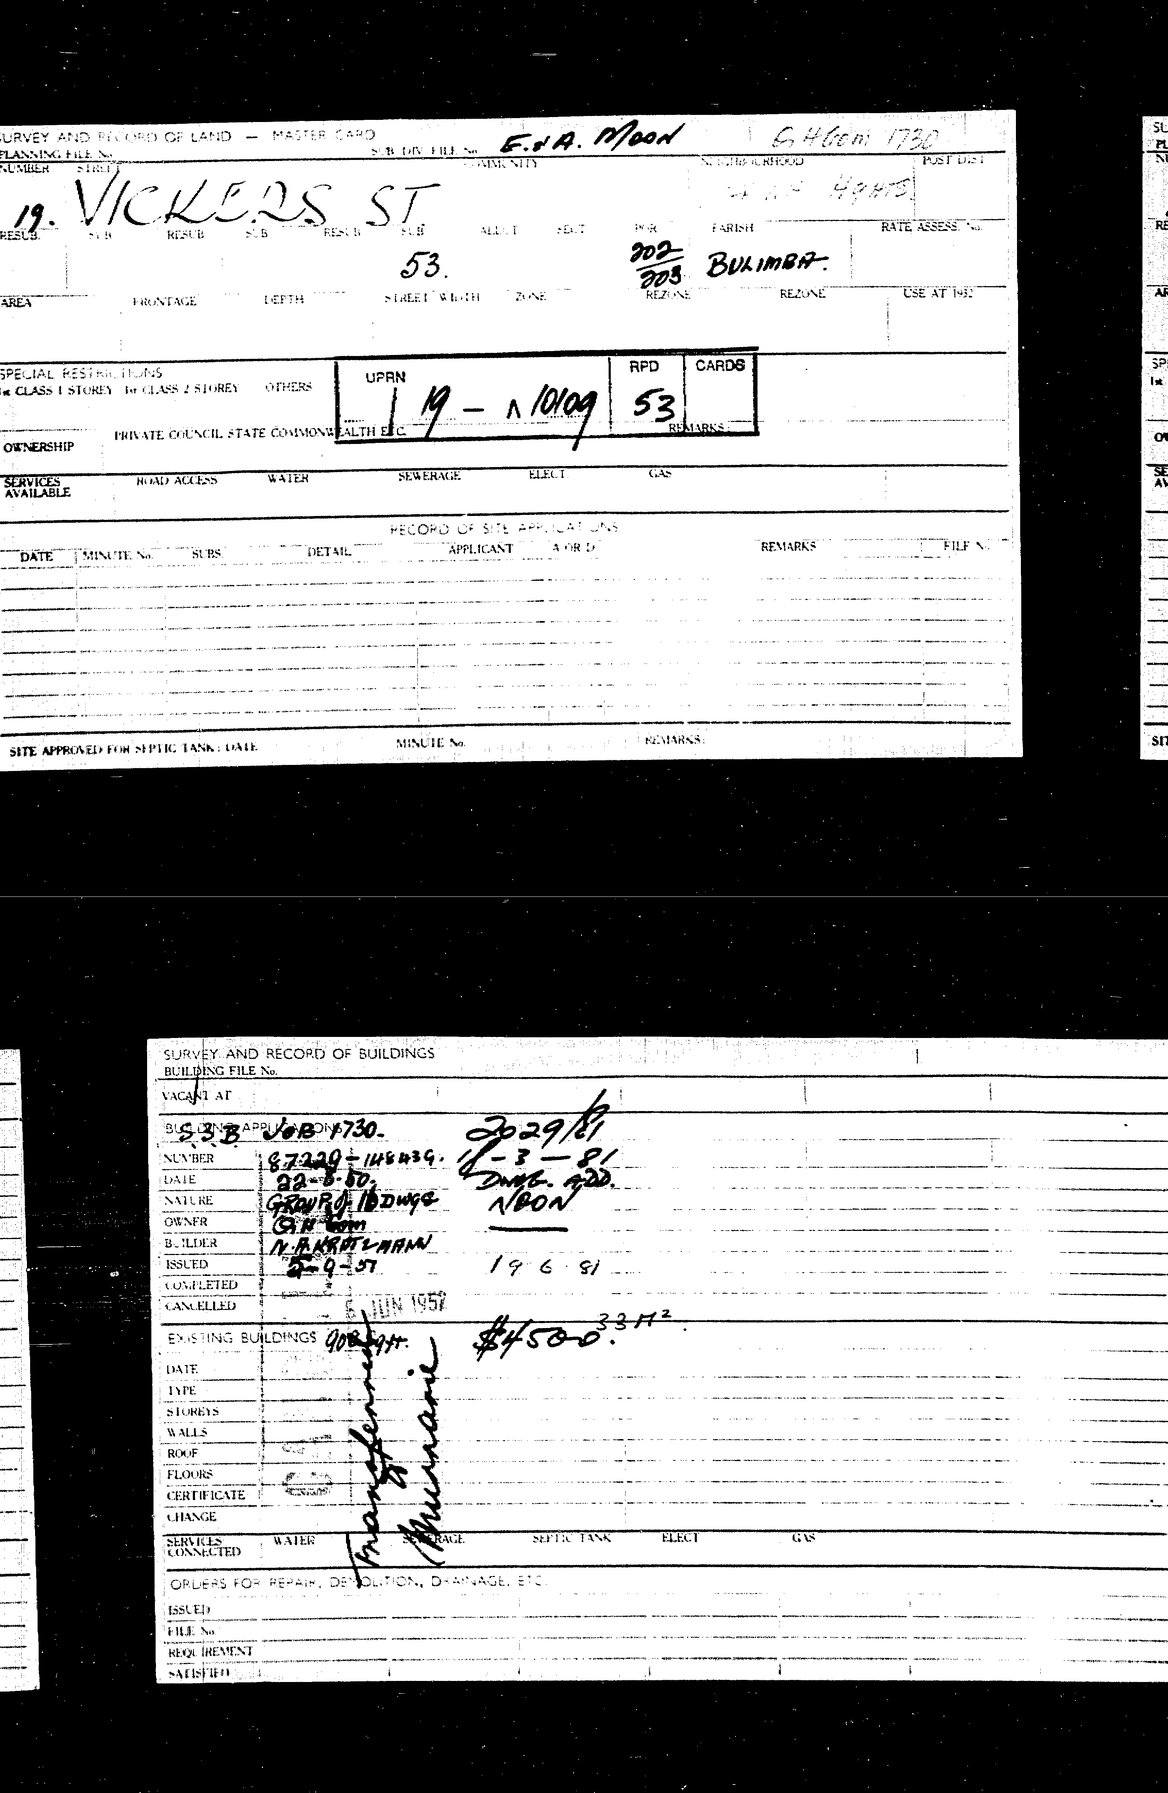 SURVEY AND RECORD OF LAND — MASTER CARD
PLANNING FILE No. SUB DIV. FILE No. E. & A. MOON G H Com 1730
NUMBER STREET COMMUNITY NEIGHBOURHOOD POST DIST
19. VICKERS ST HGHTS
RESUB. SUB RESUB SUB RESUB SUB ALLOT SECT POR PARISH RATE ASSESS. No.
53. 202/203 BULIMBA.
AREA FRONTAGE DEPTH STREET WIDTH ZONE REZONE REZONE USE AT 1952
SPECIAL RESTRICTIONS
1st CLASS 1 STOREY 1st CLASS 2 STOREY OTHERS
UPRN RPD CARDS
19 — 10109 53
OWNERSHIP PRIVATE COUNCIL STATE COMMONWEALTH ETC. REMARKS:
SERVICES AVAILABLE ROAD ACCESS WATER SEWERAGE ELECT. GAS
RECORD OF SITE APPLICATIONS
DATE MINUTE No. SUBS. DETAIL APPLICANT A OR D REMARKS FILE No.
SITE APPROVED FOR SEPTIC TANK: DATE MINUTE No. REMARKS:
SURVEY AND RECORD OF BUILDINGS
BUILDING FILE No.
VACANT AT
BUILDING APPLICATIONS
S.S.B JOB 1730. 2029/81
NUMBER 87229-148439. 11-3-81
DATE DWG. ADD.
NATURE GROUP of DWGS
OWNER
BUILDER N.A. KRATZMANN
ISSUED 5-9-51 19 6 81
COMPLETED
CANCELLED JUN 1952
EXISTING BUILDINGS 908 sq ft. $4500. 33M².
DATE
TYPE
STOREYS
WALLS
ROOF
FLOORS
CERTIFICATE
CHANGE
Transferred
SERVICES CONNECTED WATER SEWERAGE SEPTIC TANK ELECT GAS
ORDERS FOR REPAIR, DEMOLITION, DRAINAGE, ETC.
ISSUED
FILE No.
REQUIREMENT
SATISFIED